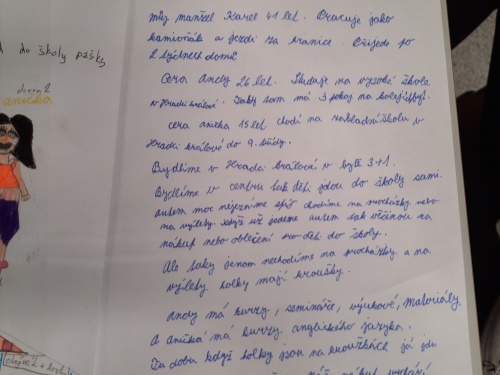 můj manžel Karel 41 let. Pracuje jako
kamioňák a jezdí za hranice. Přijede po
2 týdnech domů
Cera Andy 26 let. Studuje na vysoké škole
v Hradci králové. Taky sam má 3 pokoj na koleji
cera anička 15 let chodí na zakladní školu v
Hradci králové do 9. třídy.
Bydlíme v Hradci králové v bytě 3+1.
Bydlíme v centru tak děti jdou do školy sami
autem moc nejezníme spíš chodíme na procházky nebo
na výlety. Když už jedeme autem tak většinou na
nákup nebo oblečení pro děti do školy.
Ale taky jenom nechodíme na procházky a na
výlety holky mají kroužky.
Andy má kurzy, semináře, výukové, materiály
A anička má kurzy anglického jazyka.
Tu dobu když holky jsou na kroužkách já jdu
do školy pěšky
dcera 2
anička